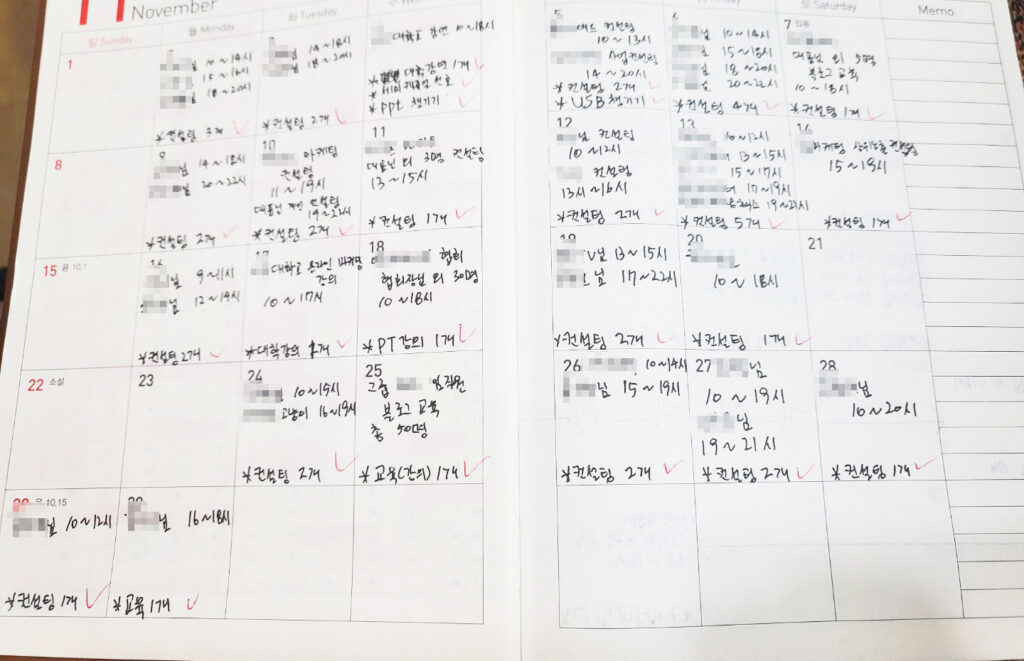 11
November
일 Sunday
월 Monday
화 Tuesday
토 Saturday
Memo
1
10~14시
15~16시
18~20시
*컨설팅 3개
14~18시
18~20시
*컨설팅 2개
대학교 강연 10~18시
*대학강연 1개
*ppt 챙기기
5
컨설팅
10~13시
14~20시
*컨설팅 2개
*USB 챙기기
6
님 10~14시
님 15~18시
님 18~20시
님 20~22시
*컨설팅 4개
7
대표님 외 5명
블로그 교육
10~13시
*컨설팅 1개
8
9
님 14~18시
님 20~22시
*컨설팅 2개
10
마케팅
컨설팅
11~19시
대표님 개인 컨설팅
19~22시
*컨설팅 2개
11
대표님 외 3명 컨설팅
13~15시
*컨설팅 1개
12
님 컨설팅
10~12시
컨설팅
13시~16시
*컨설팅 2개
13
10~12시
13~15시
15~17시
17~19시
19~21시
*컨설팅 5개
14
마케팅 상위노출 컨설팅
15~19시
*컨설팅 1개
15 음 10.1
16
님 9~11시
님 12~19시
*컨설팅 2개
17
대학교 온라인 마케팅
강의
10~17시
*대학강의 1개
18
협회
협회장님 외 30명
10~18시
*PT강의 1개
19
님 13~15시
님 17~22시
*컨설팅 2개
20
10~18시
*컨설팅 1개
21
22 소설
23
24
10~15시
고양이 16~19시
*컨설팅 2개
25
그룹 임직원
블로그 교육
총 50명
*교육(강의) 1개
26
10~14시
님 15~19시
*컨설팅 2개
27
님
10~19시
님
19~21시
*컨설팅 2개
28
님
10~20시
*컨설팅 1개
29 음 10.15
님 10~12시
*컨설팅 1개
30
님 16~18시
*교육 1개